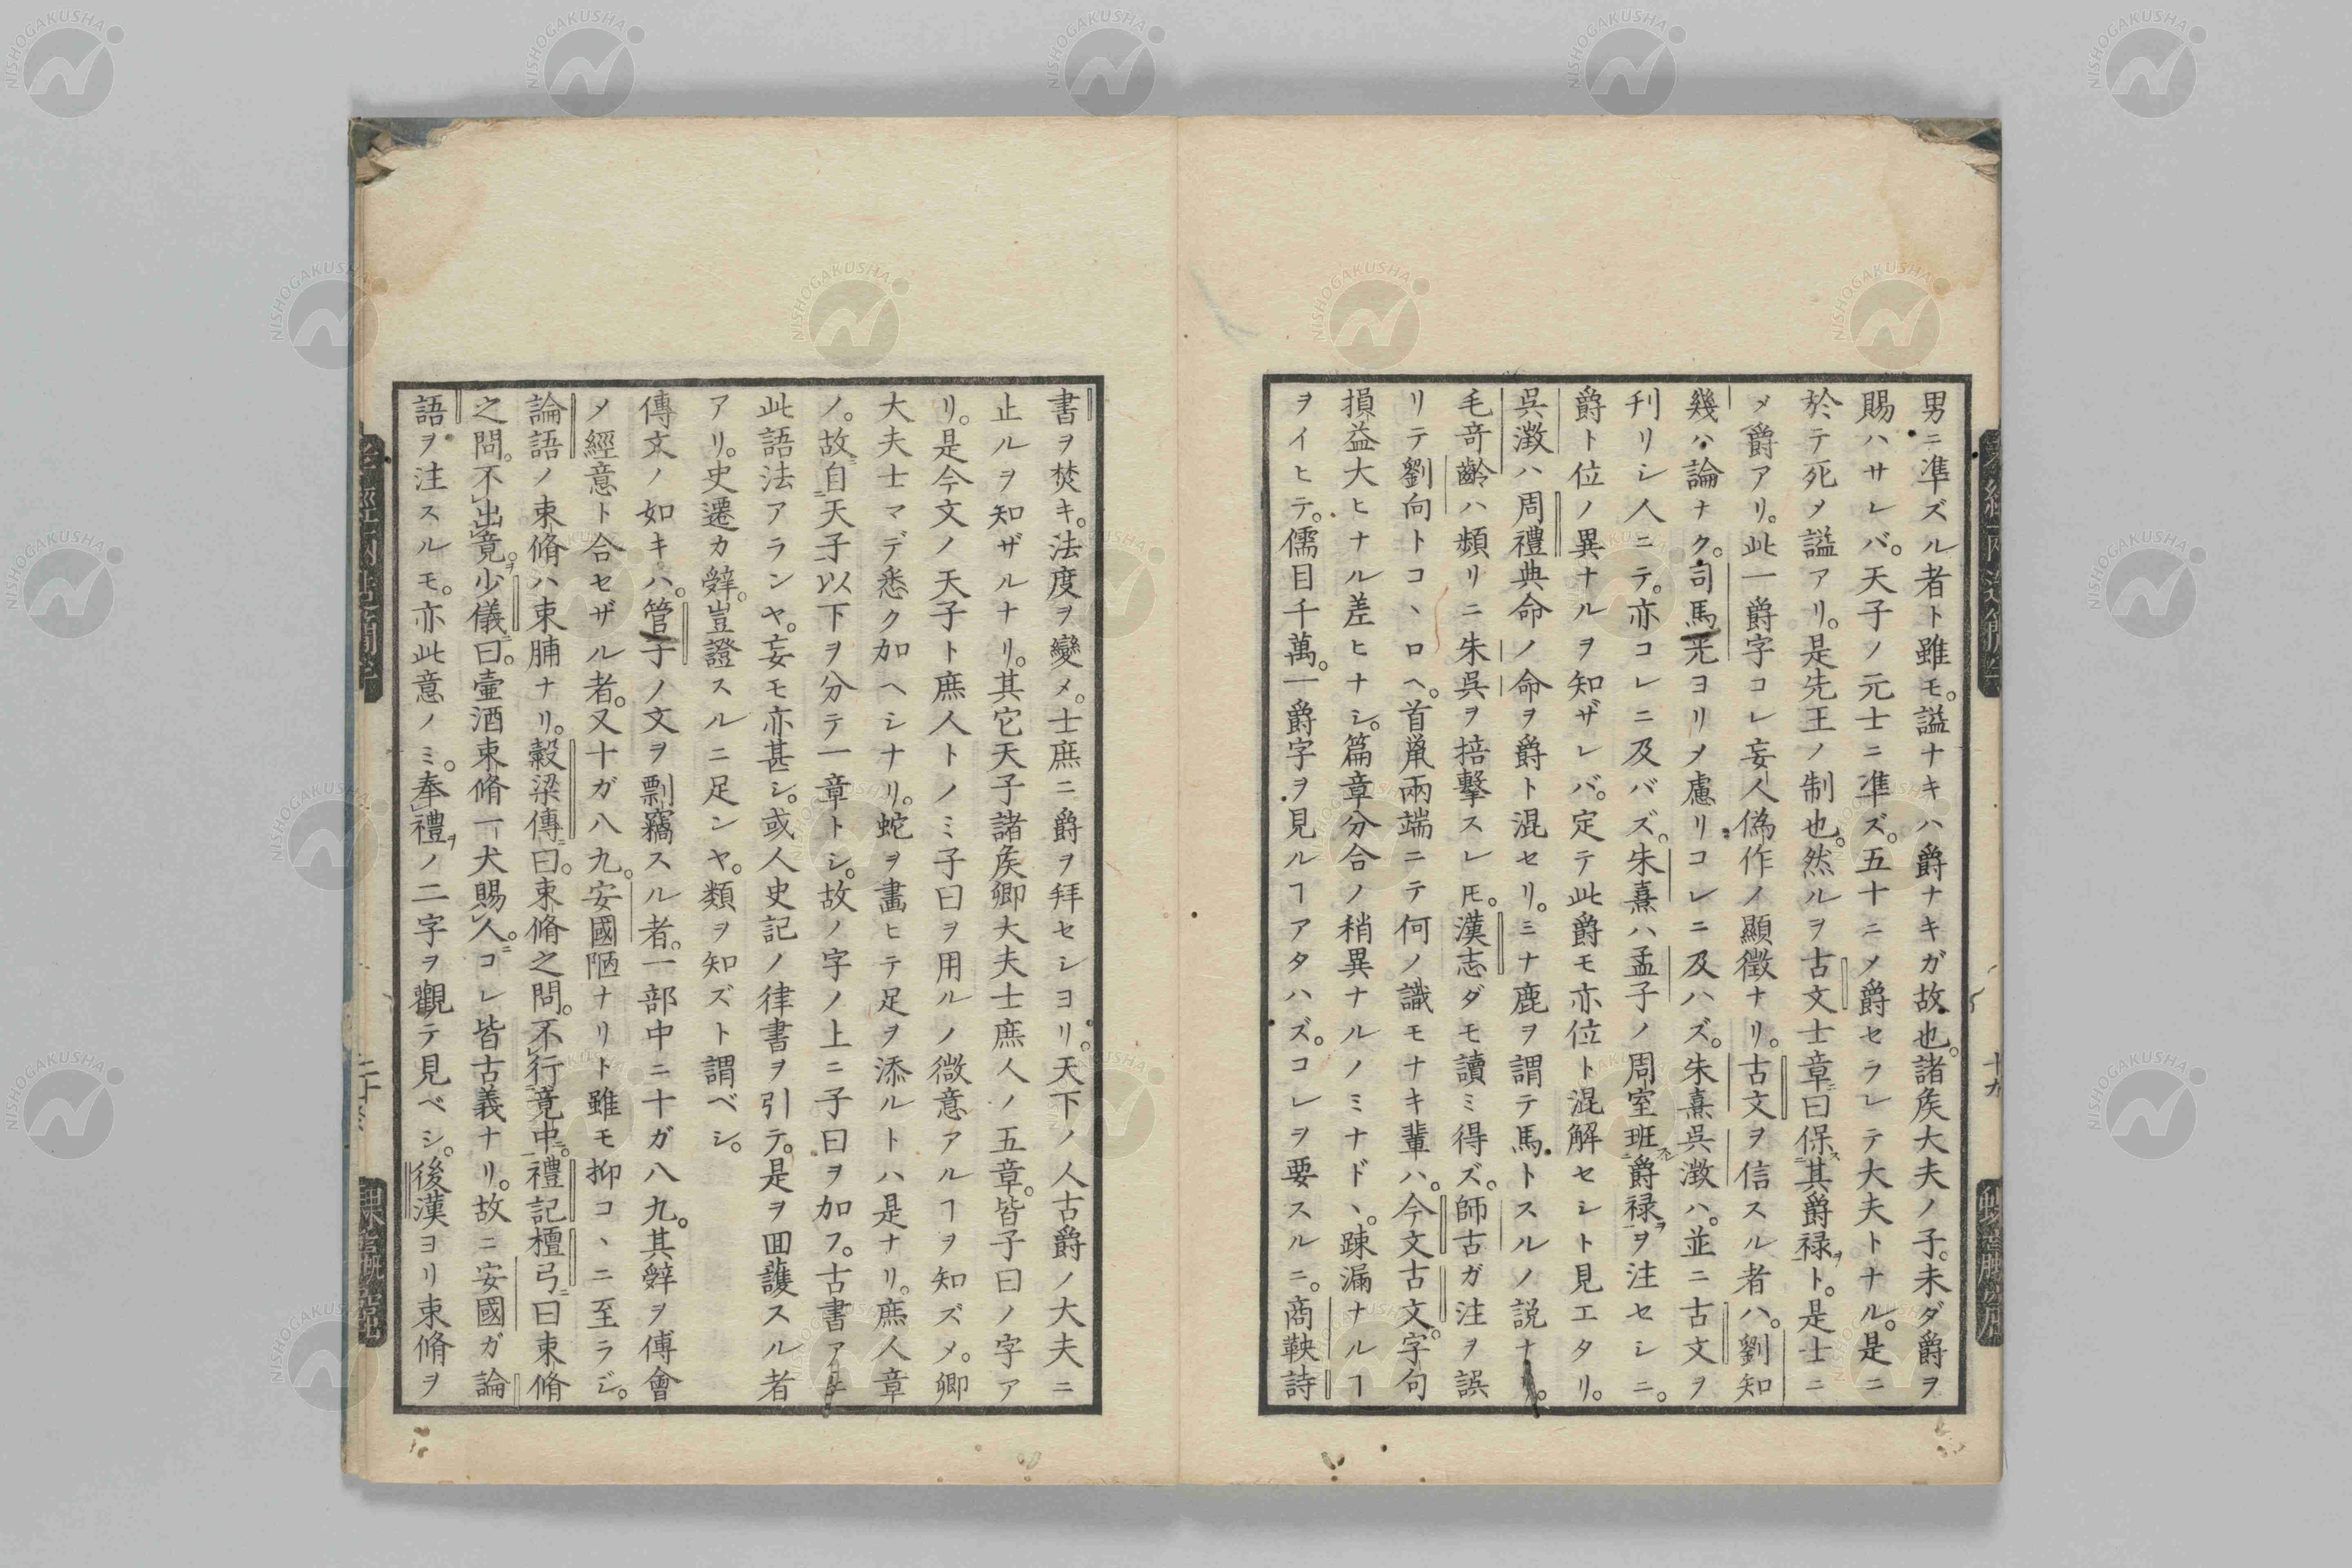 男ニ準ズル者ト雖モ。謚ナキハ爵ナキガ故也。諸矦大夫ノ子。未ダ爵ヲ
賜ハサレバ。天子ノ元士ニ準ズ。五十ニメ爵セラレテ大夫トナル。是ニ
於テ死メ謚アリ。是先王ノ制也。然ルヲ古文士章ニ曰保其爵禄ヲト。是士ニ
メ爵アリ。此一爵字コレ妄人偽作ノ顯徵ナリ。古文ヲ信スル者ハ。劉知
幾ハ論ナク。司馬光ヨリメ慮リコレニ及ハズ。朱熹呉澂ハ。並ニ古文ヲ
刊リシ人ニテ。亦コレニ及バズ。朱熹ハ孟子ノ周室班爵禄ヲ注セシニ。
爵ト位ノ異ナルヲ知ザレバ。定テ此爵モ亦位ト混解セシト見エタリ。
呉澂ハ周禮典命ノ命ヲ爵ト混セリ。ミナ鹿ヲ謂テ馬トスルノ説ナリ。
毛奇齡ハ頻リニ朱呉ヲ掊擊スレ𪜈。漢志ダモ讀ミ得ズ。師古ガ注ヲ誤
リテ劉向トコヽロヘ。首鼡兩端ニテ何ノ識モナキ輩ハ。今文古文。字句
損益大ヒナル差ヒナシ。篇章分合ノ稍異ナルノミナドヽ。踈漏ナルヿ
ヲイヒテ。儒目千萬。一爵字ヲ見ルヿアタハズ。コレヲ要スルニ。商鞅詩
書ヲ焚キ。法度ヲ變メ。士庶ニ爵ヲ拜セシヨリ。天下ノ人古爵ノ大夫ニ
止ルヲ知ザルナリ。其它天子諸矦卿大夫士庶人ノ五章。皆子曰ノ字ア
リ。是今文ノ天子ト庶人トノミ子曰ヲ用ルノ微意アルヿヲ知ズメ。卿
大夫士マデ悉ク加ヘシナリ。蛇ヲ畫ヒテ足ヲ添ルトハ是ナリ。庶人章
ノ。故自天子以下ヲ分テ一章トシ。故ノ字ノ上ニ子曰ヲ加フ。古書アニ
此語法アランヤ。妄モ亦甚シ。或人史記ノ律書ヲ引テ。是ヲ囬護スル者
アリ。史遷カ辤。豈證スルニ足ンヤ。類ヲ知ズト謂ベシ。
傳文ノ如キハ。管子ノ文ヲ剽竊スル者。一部中ニ十ガ八九。其辤ヲ傅會
メ經意ト合セザル者。又十ガ八九。安國陋ナリト雖モ抑コヽニ至ラジ。
論語ノ束脩ハ束脯ナリ。穀梁傳ニ曰。束脩之問。不行竟中。禮記檀弓ニ曰束脩
之問。不出竟。少儀ニ曰。壷酒束脩一犬賜人。コレ皆古義ナリ。故ニ安國ガ論
語ヲ注スルモ。亦此意ノミ。奉禮ヲノ二字ヲ觀テ見ベシ。後漢ヨリ束脩ヲ
十九
NISHOGAKUSHA